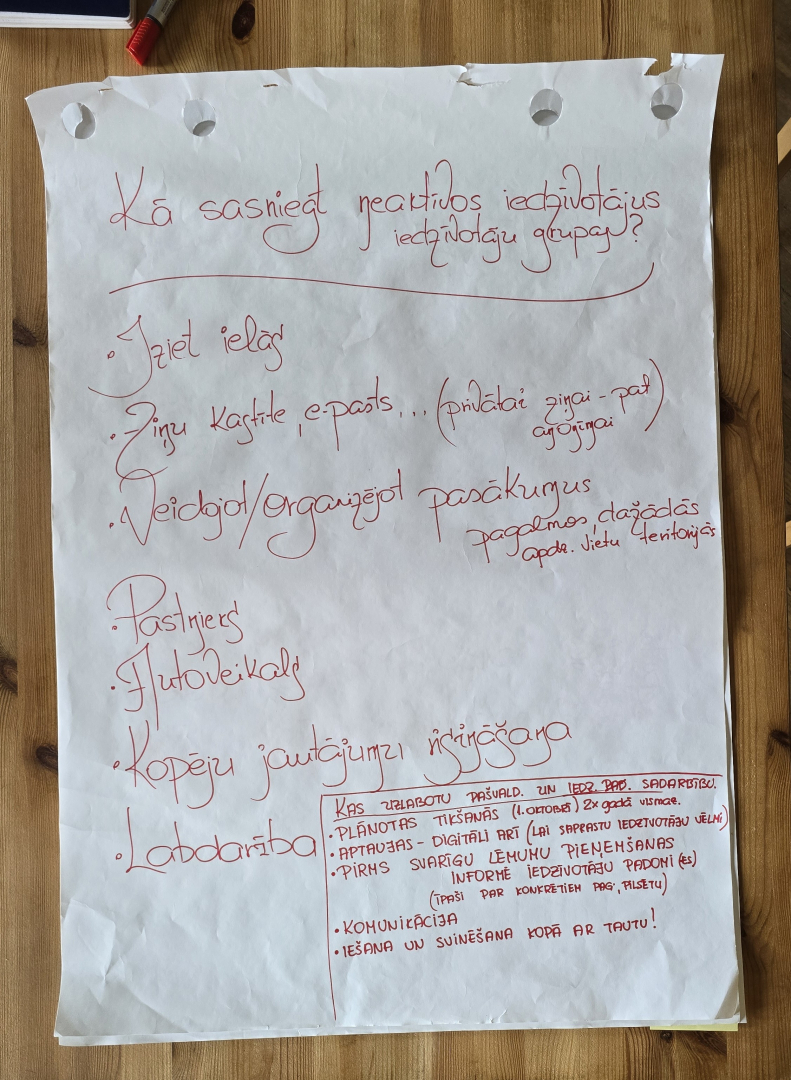 Kā sasniegt neaktīvos iedzīvotājus
iedzīvotāju grupas?
• Iziet ielās
• Ziņu kastīte, e-pasts... (privātai ziņai - pat
anonīmai)
• Veidojot/organizējot pasākumus
pagalmos, dažādās
apdz. vietu teritorijās
• Pastnieks
• Autoveikals
• Kopēju jautājumu risināšana
• Labdarība
KAS UZLABOTU PAŠVALD. UN IEDZ. PAD. SADARBĪBU.
• PLĀNOTAS TIKŠANĀS (1. OKTOBRĪ) 2x gadā vismaz.
• APTAUJAS - DIGITĀLI ARĪ (LAI SAPRASTU IEDZĪVOTĀJU VĒLMI)
• PIRMS SVARĪGU LĒMUMU PIEŅEMŠANAS
INFORMĒ IEDZĪVOTĀJU PADOMI (ES)
(ĪPAŠI PAR KONKRĒTIEM PAG., PILSĒTU)
• KOMUNIKĀCIJA
• IEŠANA UN SVINĒŠANA KOPĀ AR TAUTU!